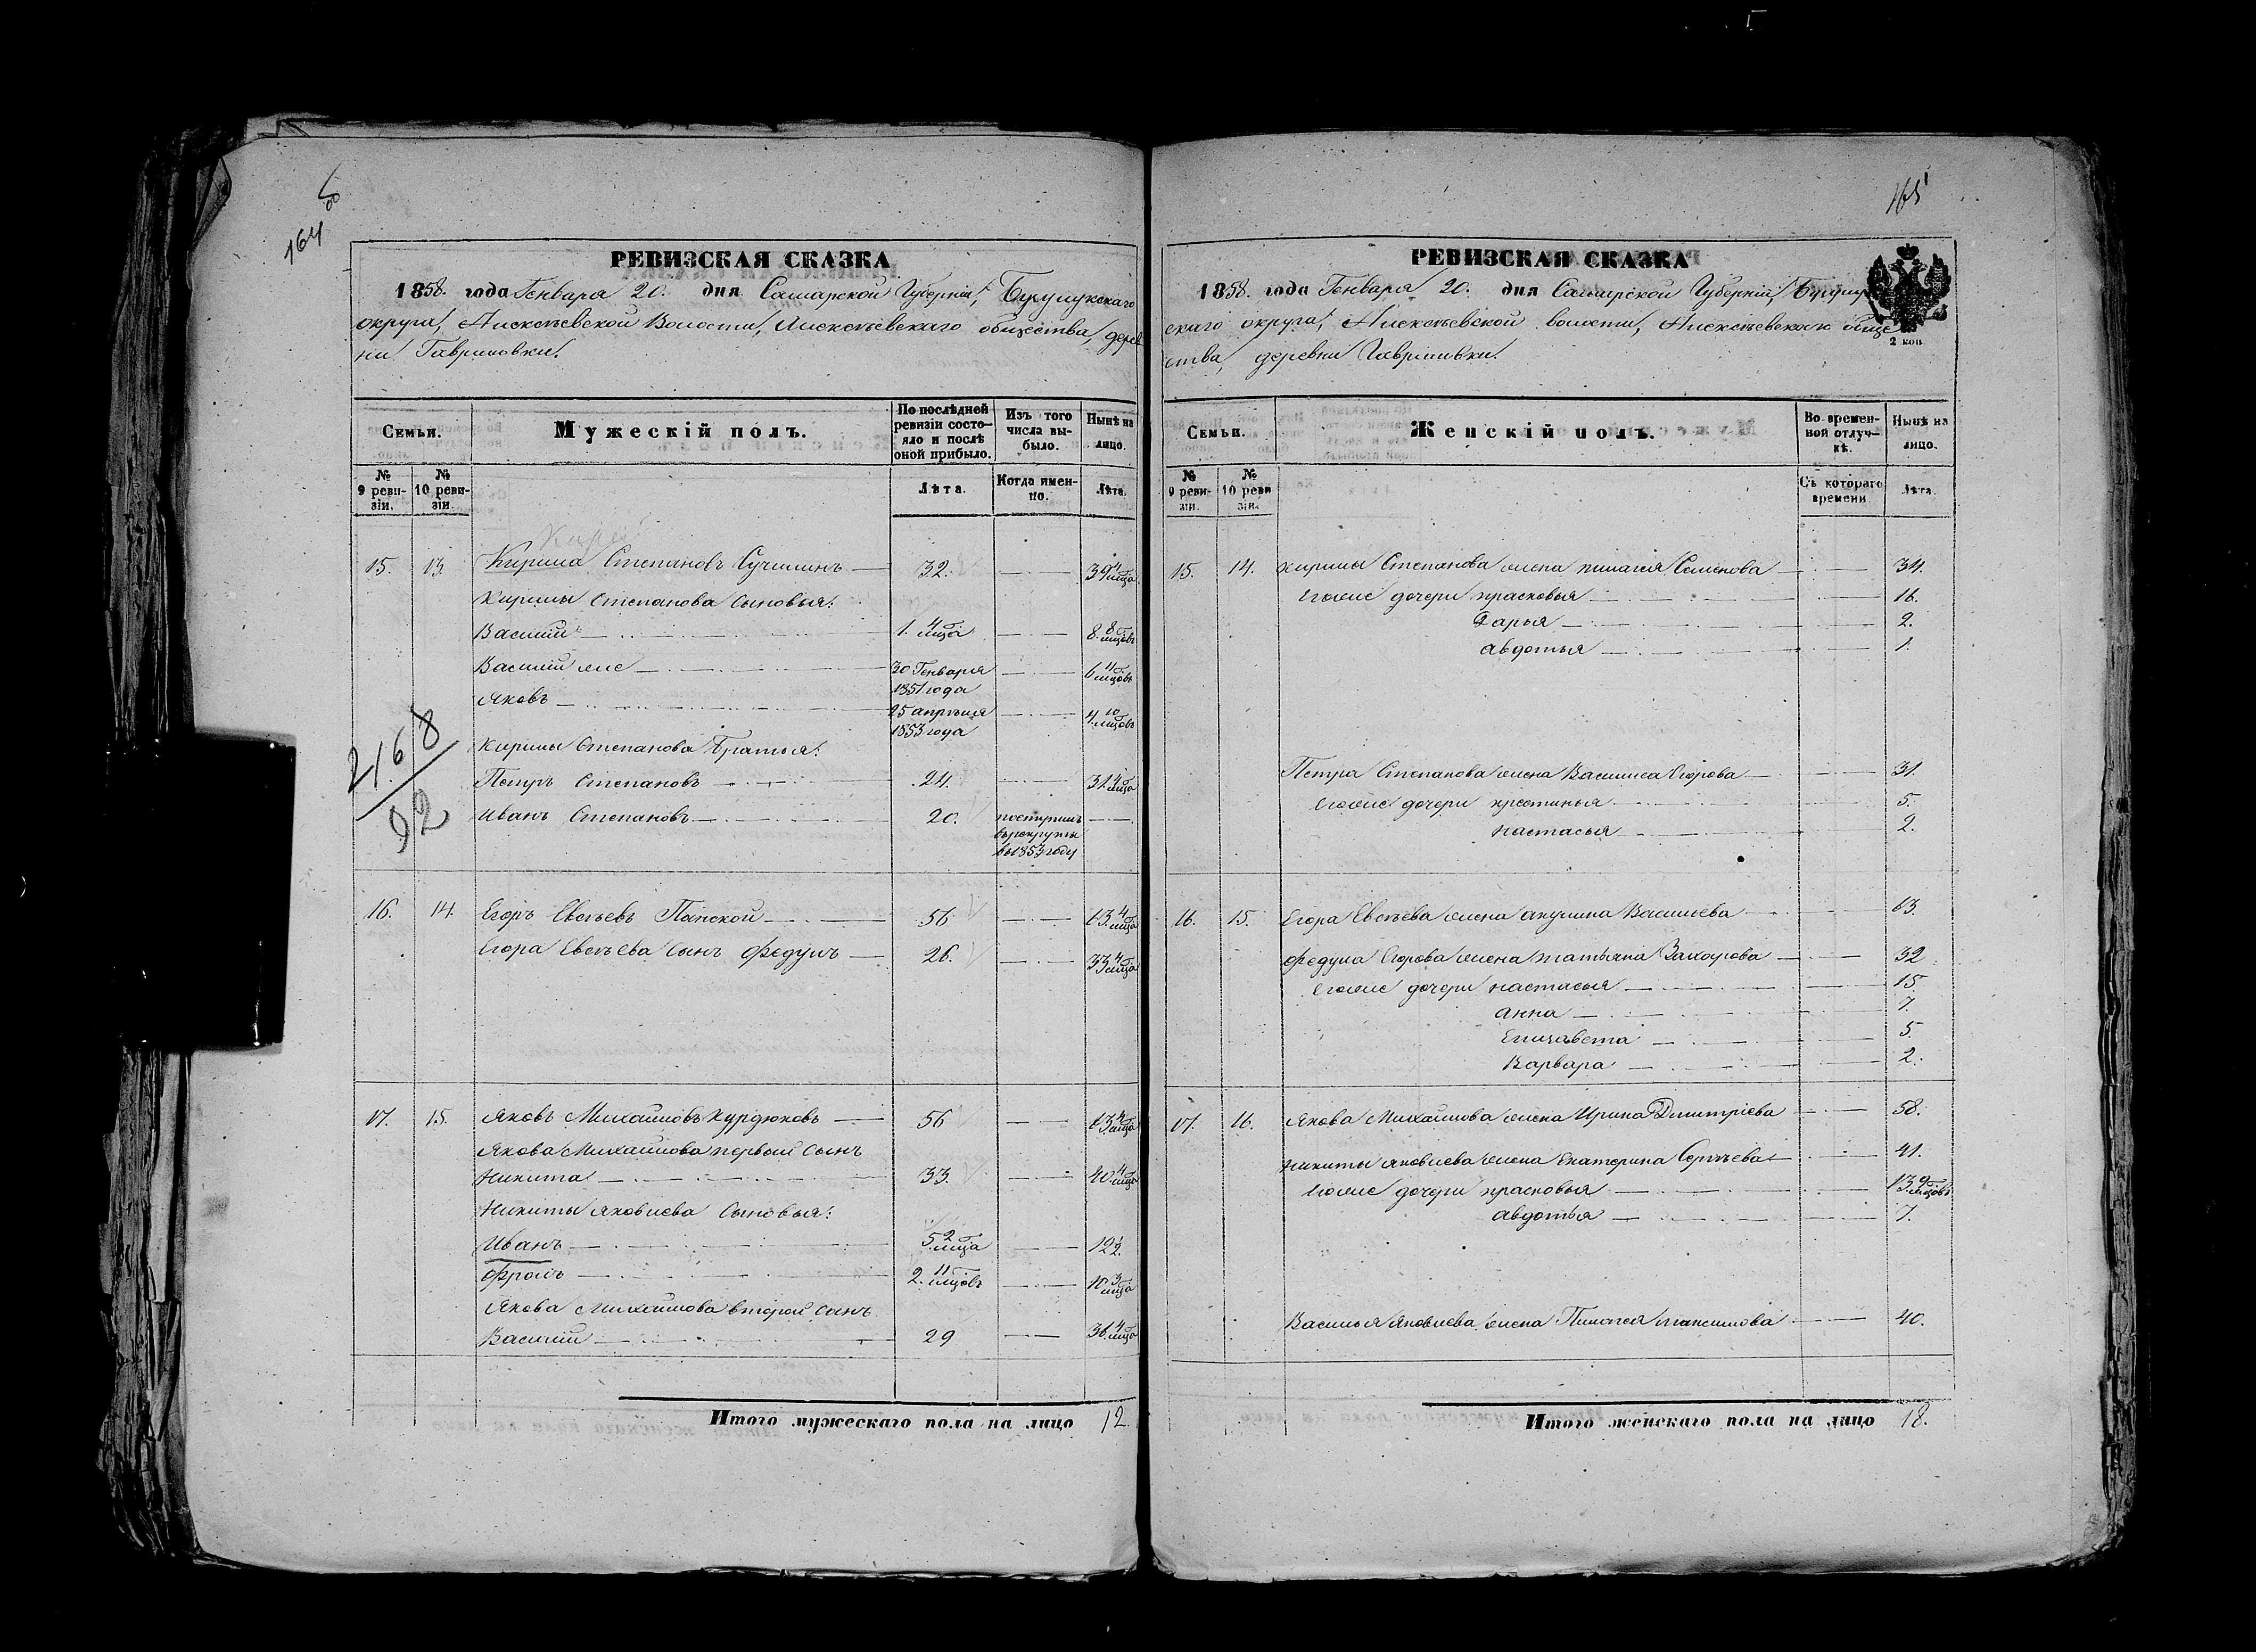 164 об
РЕВИЗСКАЯ СКАЗКА
1858. года Генваря 20. дня Самарской Губерніи, Бузулукскаго
округа, Алексѣевской Волости, Алексѣевскаго общества, дерев
ни Гавриловки.
Семьи.
Мужескій полъ.
По послѣдней ревизіи состояло и послѣ оной прибыло.
Изъ того числа выбыло.
Нынѣ на лицо.
№ 9 ревизіи.
№ 10 ревизіи.
Лѣта.
Когда именно.
Лѣта.
15. 13. Кирила Степановъ 32. 39 4 мѣца
Кирилы Степанова сыновья:
Василій 1. 4 мѣца 8. 8 мѣцовъ
Василій же 30 Генваря 1851 года 6 11 мѣцовъ
Яковъ 25 апрѣля 1853 года 4. 10 мѣцовъ
2168
92
Кирилы Степанова братья:
Петръ Степановъ 24. 31. 4 мѣца
Иванъ Степановъ 20. поступилъ въ рекруты въ 1853 году
16. 14. Егоръ Евсѣевъ Панской 56 63. 4 мѣца
Егора Евсѣева сынъ Федулъ 26. 33 4 мѣца
17. 15. Яковъ Михайловъ Курдюковъ 56 63. 4 мѣца
Якова Михайлова первый сынъ
Никита 33. 40. 4 мѣца
Никиты Яковлева сыновья:
Иванъ 5. 2 мѣца 12 1/2.
Фролъ 2. 11 мѣцовъ 10. 3 мѣца
Якова Михайлова второй сынъ
Василій 29 36. 4 мѣца
Итого мужескаго пола на лицо 12.
165
РЕВИЗСКАЯ СКАЗКА
1858. года Генваря 20. дня Самарской Губерніи, Бузулук
скаго округа, Алексѣевской волости, Алексѣевскаго обще
2 коп
ства, деревни Гавриловки.
Семьи.
Женскій полъ.
Во временной отлучкѣ.
Нынѣ на лицо.
№ 9 ревизіи.
№ 10 ревизіи.
Съ котораго времени
Лѣта.
15. 14. Кирилы Степанова жена Пилагея Семенова 34.
Его же дочери Прасковья 16.
Дарья 2.
Авдотья 1.
Петра Степанова жена Василиса Егорова 31.
Его же дочери Крестинья 5.
Настасья 2.
16. 15. Егора Евсѣева жена Акулина Васильева 63.
Федула Егорова жена Татьяна Захарова 32
Его же дочери Настасья 15.
Анна 7.
Елизавета 5.
Варвара 2.
17. 16. Якова Михайлова жена Ирина Дмитріева 58.
Никиты Яковлева жена Екатерина Сергѣева 41.
Его же дочери Прасковья 13. 9 мѣцовъ
Авдотья 7.
Василья Яковлева жена Пилагея Максимова 40.
Итого женскаго пола на лицо 18.